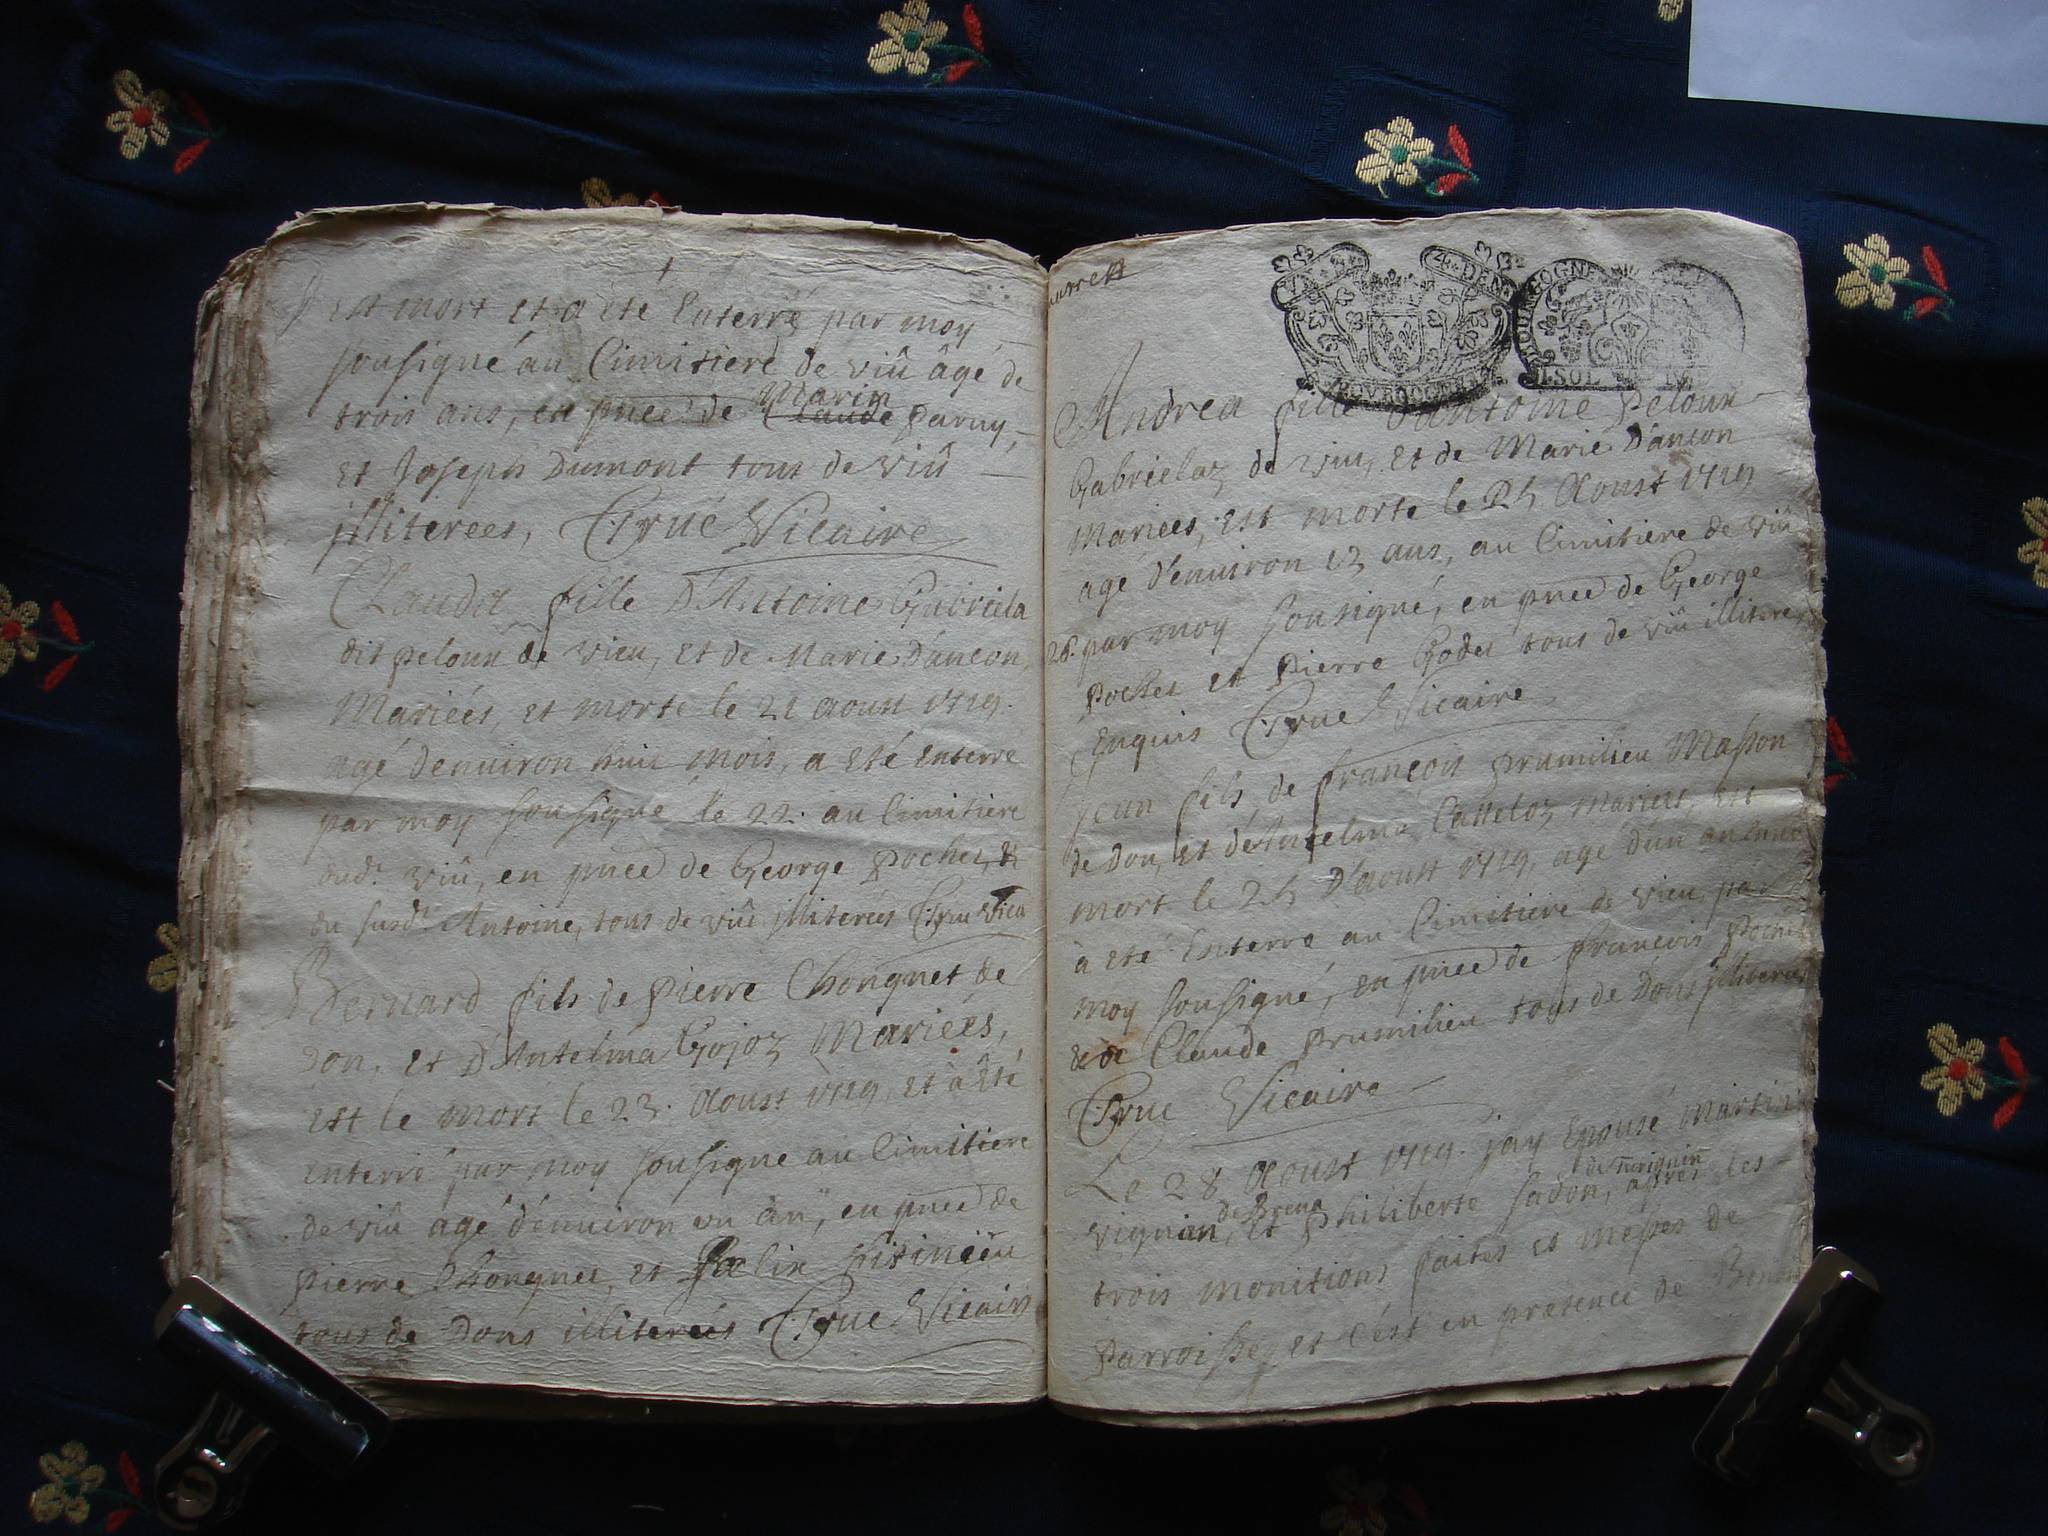 Est mort et a eté Enterré par moy
sousigné au Cimitiere de viû âgé de
trois ans, en pnce de Marin Claude paruy,
et Joseph Dumont tous de viû
jlliterees, Crué Vicaire
Clauda fille D'Antoine Gabriela
dit peloux de vieu, et de Marie D'ancon,
Mariées, et morte le 21 aoust 1719.
agé denuiron huit mois, a eté enterré
par moy sousigné le 22. au Cimitiere
dud. viû, en pnce de George Pochet, &
du susd. Antoine, tous de viû jlliterées Crue Vica
Bernard fils de pierre Chongnet de
Don, et D'Antelma Gojoz Mariées,
Est le mort le 23. Aoust 1719, et à Eté
enterré par moy sousigne au Cimitiere
de viû agé d'enuiron un an, en pnce de
pierre Chongnet, et Fœlix
tous de Dons illiterées Crue Vicair
Andrea fille D'antoine peloux
Gabrielaz de viu, et de Marie D'ancon
Mariees, Est morte le 25 Aoust 1719
agé d'enuiron 12 ans, au Cimitiere de viû
26. par moy sousigné, en pnce de George
Pochet et Pierre Godet tous de viû illitere
Enquis Crue Vicaire
Jean fils de françois prumilieu Masson
de Don, et d'Antelma Catteloz Mariees, Est
mort le 25 D'aoust 1719, agé d'un an
à eté Enterre au Cimitiere de vieu par
moy sousigné, en pnce de francois Pochet
& de Claude Prumilieu tous de Dons jlliterees
Crue Vicaire
Le 28 Aoust 1719. jay Epousé Martin
vignan, de Brena et Philiberte sadon, apres les
trois monitions faites es messes de
Parroisse, et c'est en presence de
BOURGOGNE